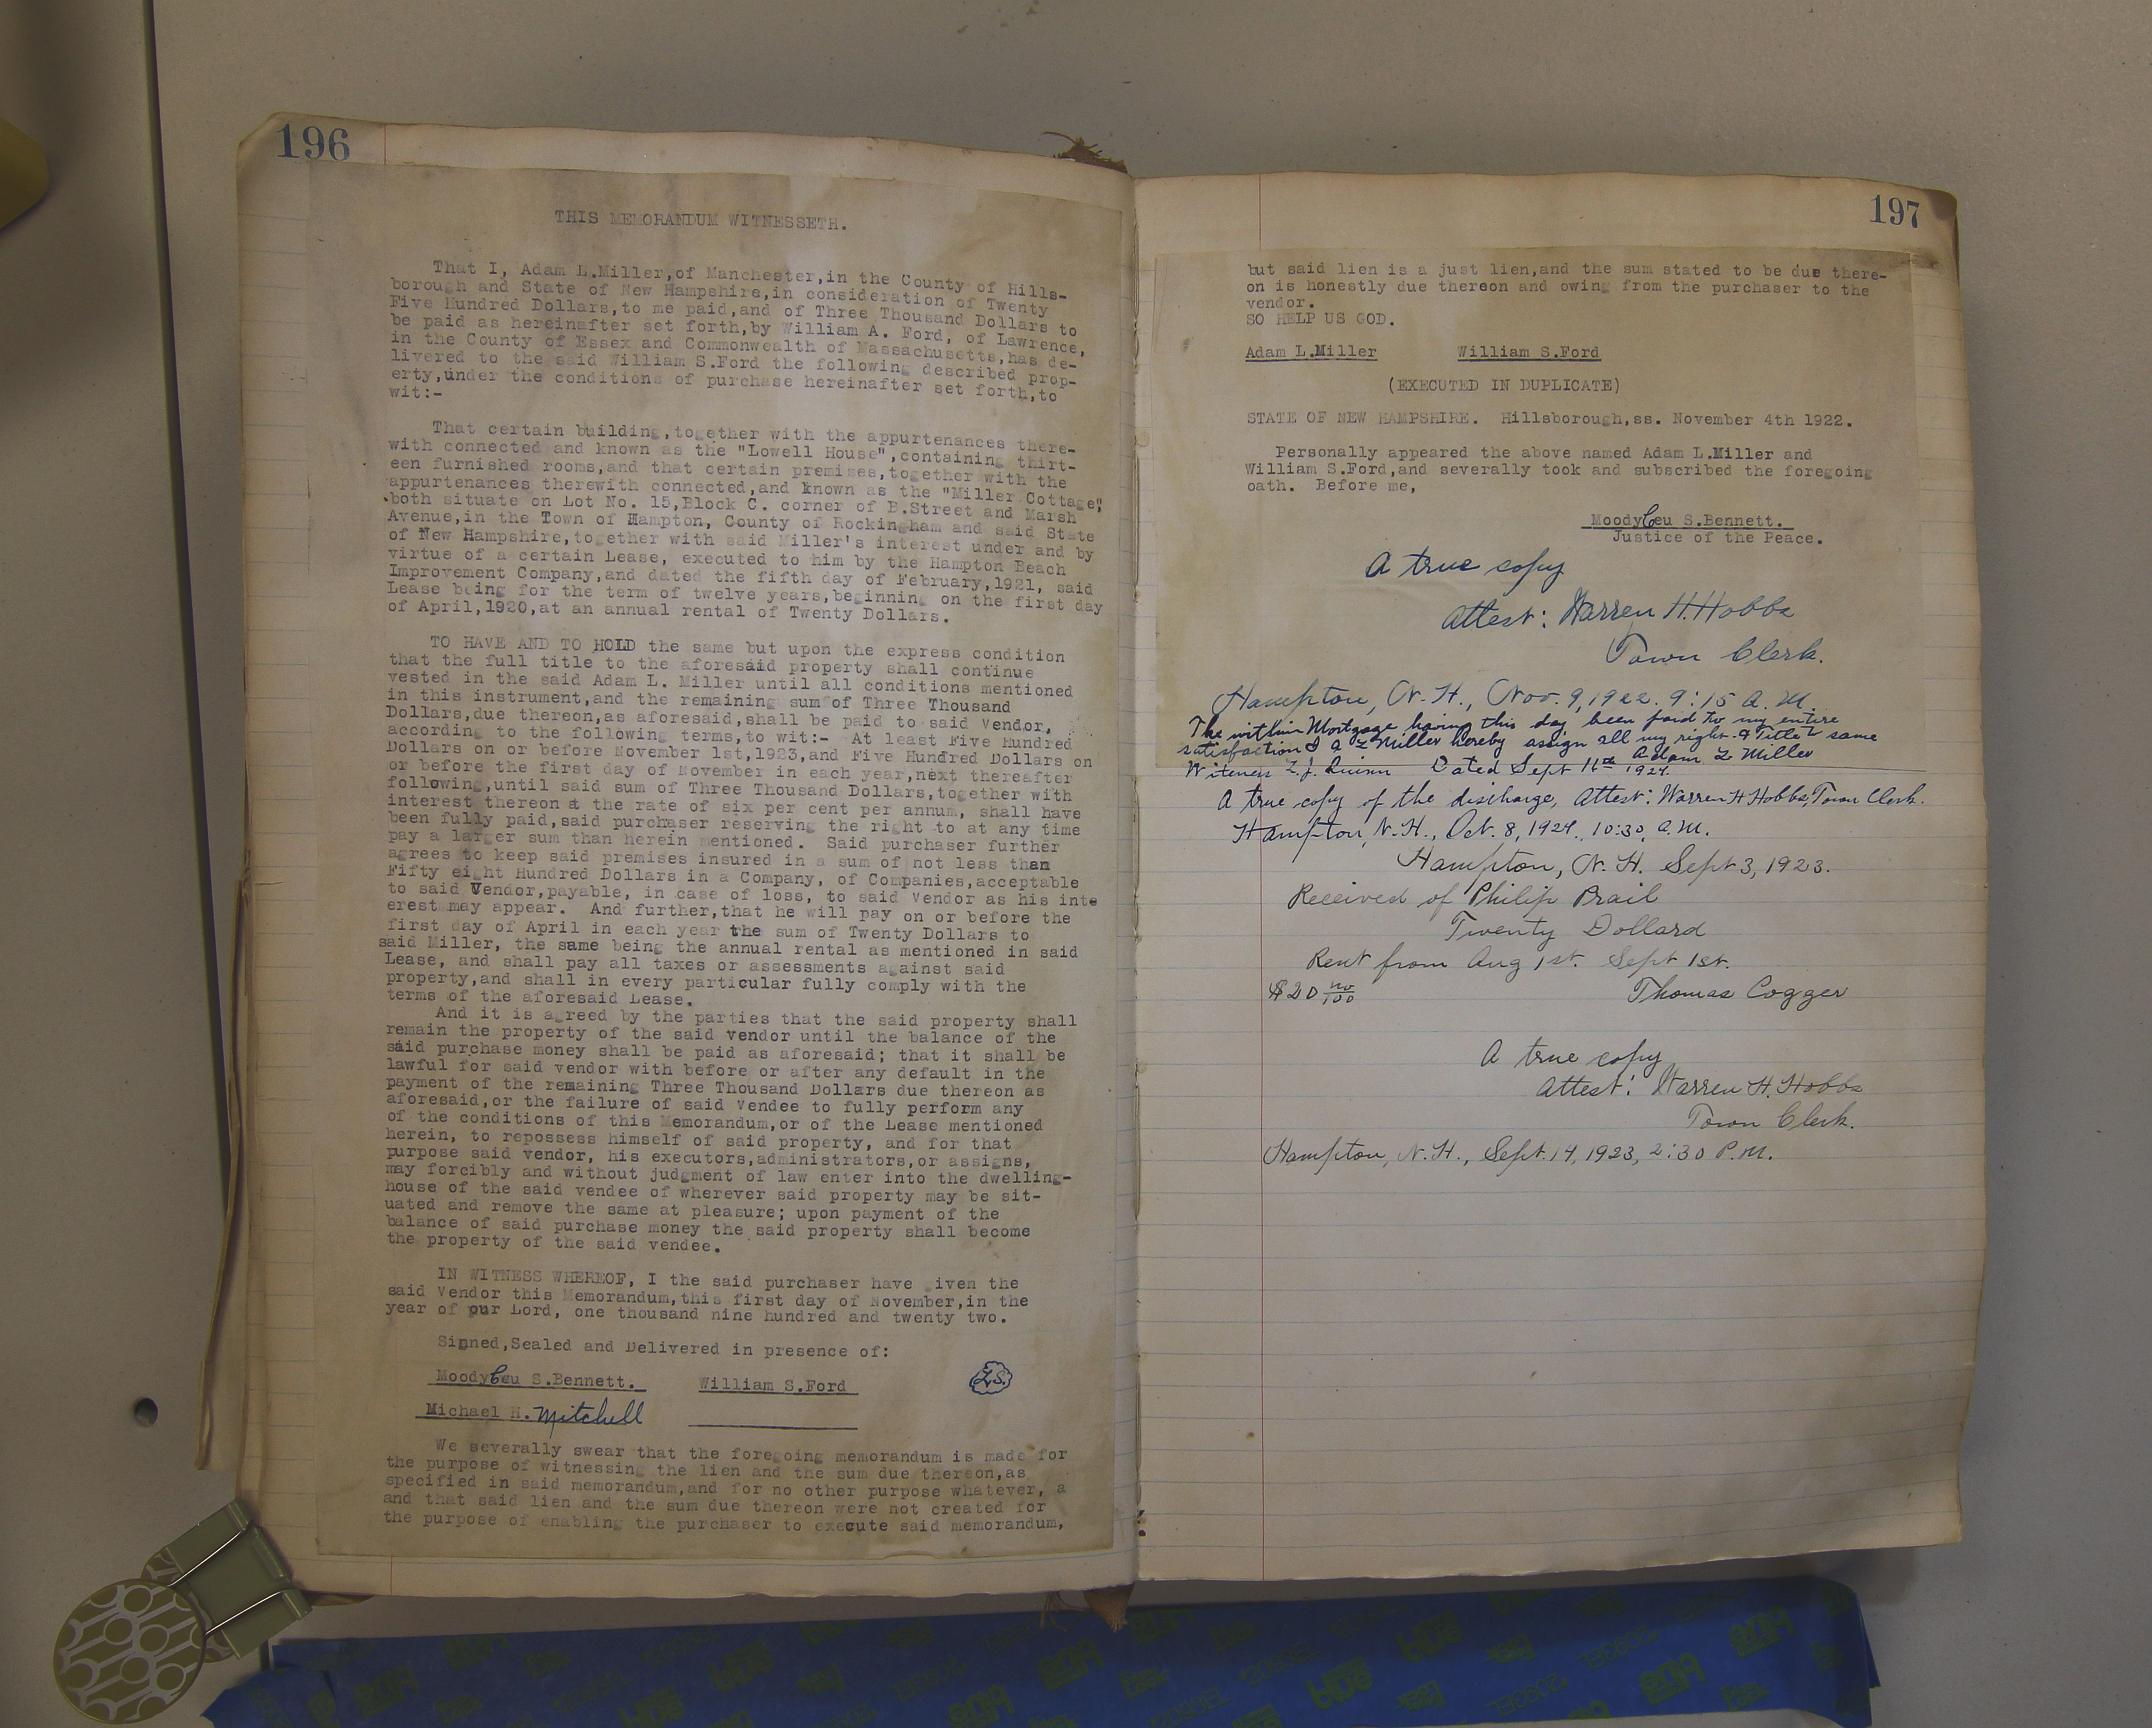 196
THIS MEMORANDUM WITNESSETH.
That I, Adam L.Miller,of Manchester,in the County of Hills-
borough and State of New Hampshire,in consideration of Twenty
Five Hundred Dollars,to me paid,and of Three Thousand Dollars to
be paid as hereinafter set forth,by William A. Ford, of Lawrence,
in the County of Essex and Commonwealth of Massachusetts,has de-
livered to the said William S.Ford the following described prop-
erty,under the conditions of purchase hereinafter set forth,to
wit:-
That certain building,together with the appurtenances there-
with connected and known as the "Lowell House",containing thirt-
een furnished rooms,and that certain premises,together with the
appurtenances therewith connected,and known as the "Miller Cottage",
both situate on Lot No. 15,Block C. corner of B.Street and Marsh
Avenue,in the Town of Hampton, County of Rockingham and said State
of New Hampshire,together with said Miller's interest under and by
virtue of a certain Lease, executed to him by the Hampton Beach
Improvement Company,and dated the fifth day of February,1921, said
Lease being for the term of twelve years,beginning on the first day
of April,1920,at an annual rental of Twenty Dollars.
TO HAVE AND TO HOLD the same but upon the express condition
that the full title to the aforesaid property shall continue
vested in the said Adam L. Miller until all conditions mentioned
in this instrument,and the remaining sum of Three Thousand
Dollars,due thereon,as aforesaid,shall be paid to said Vendor,
according to the following terms,to wit:- At least Five Hundred
Dollars on or before November 1st,1923,and Five Hundred Dollars on
or before the first day of November in each year,next thereafter
following,until said sum of Three Thousand Dollars,together with
interest thereon at the rate of six per cent per annum, shall have
been fully paid,said purchaser reserving the right to at any time
pay a larger sum than herein mentioned. Said purchaser further
agrees to keep said premises insured in a sum of not less than
Fifty eight Hundred Dollars in a Company, of Companies,acceptable
to said Vendor,payable, in case of loss, to said Vendor as his inte
erest may appear. And further,that he will pay on or before the
first day of April in each year the sum of Twenty Dollars to
said Miller, the same being the annual rental as mentioned in said
Lease, and shall pay all taxes or assessments against said
property,and shall in every particular fully comply with the
terms of the aforesaid Lease.
And it is agreed by the parties that the said property shall
remain the property of the said vendor until the balance of the
said purchase money shall be paid as aforesaid; that it shall be
lawful for said vendor with before or after any default in the
payment of the remaining Three Thousand Dollars due thereon as
aforesaid,or the failure of said Vendee to fully perform any
of the conditions of this Memorandum,or of the Lease mentioned
herein, to repossess himself of said property, and for that
purpose said vendor, his executors,administrators,or assigns,
may forcibly and without judgment of law enter into the dwelling-
house of the said vendee of wherever said property may be sit-
uated and remove the same at pleasure; upon payment of the
balance of said purchase money the said property shall become
the property of the said vendee.
IN WITNESS WHEREOF, I the said purchaser have given the
said Vendor this Memorandum,this first day of November,in the
year of our Lord, one thousand nine hundred and twenty two.
Signed,Sealed and Delivered in presence of:
MoodyBeu S.Bennett. William S.Ford L.S.
Michael H. Mitchell
We severally swear that the foregoing memorandum is made for
the purpose of witnessing the lien and the sum due thereon,as
specified in said memorandum,and for no other purpose whatever, a
and that said lien and the sum due thereon were not created for
the purpose of enabling the purchaser to execute said memorandum,
197
but said lien is a just lien,and the sum stated to be due there-
on is honestly due thereon and owing from the purchaser to the
vendor.
SO HELP US GOD.
Adam L.Miller William S.Ford
(EXECUTED IN DUPLICATE)
STATE OF NEW HAMPSHIRE. Hillsborough,ss. November 4th 1922.
Personally appeared the above named Adam L.Miller and
William S.Ford,and severally took and subscribed the foregoing
oath. Before me,
MoodyBeu S.Bennett.
Justice of the Peace.
A true copy
Attest: Warren H. Hobbs
Town Clerk.
Hampton, N. H., Nov. 9, 1922. 9:15 A. M.
The within Mortgage having this day been paid to my entire
satisfaction I A L Miller hereby assign all my right & Title same
Adam L Miller
Witeness Dated Sept 16th 1924.
A true copy of the discharge, Attest: Warren H Hobbs, Town Clerk.
Hampton, N. H., Oct. 8, 1924, 10:30 A.M.
Hampton, N. H. Sept 3, 1923.
Received of Philip Brail
Twenty Dollard
Rent from Aug 1st. Sept 1st.
$20 no/100 Thomas Cogger
A true copy
Attest: Warren H. Hobbs
Town Clerk.
Hampton, N. H., Sept. 14, 1923, 2:30 P.M.